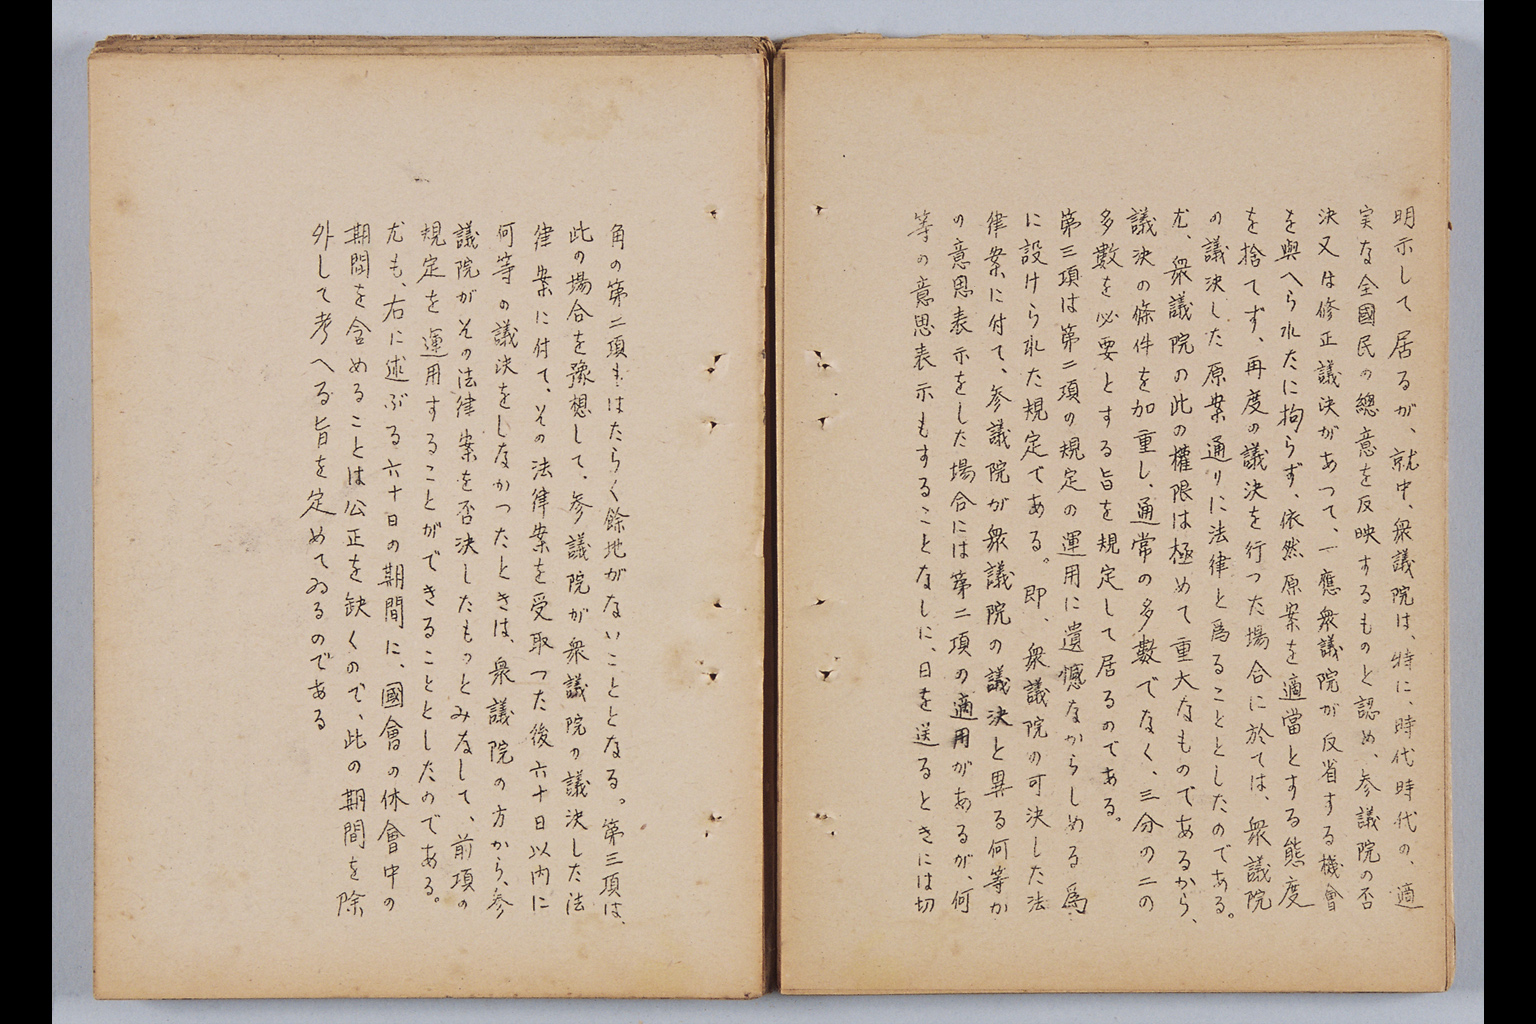 明示して居るが、就中、衆議院は、特に、時代時代の、適
実な全國民の總意を反映するものと認め、参議院の否
決又は修正議決があつて、一應衆議院が反省する機會
を與へられたに拘らず、依然原案を適當とする態度
を捨てず、再度の議決を行つた場合に於ては、衆議院
の議決した原案通りに法律と為ることとしたのである。
尤、衆議院の此の權限は極めて重大なものであるから、
議決の條件を加重し、通常の多數でなく、三分の二の
多數を必要とする旨を規定して居るのである。
第三項は第二項の規定の運用に遺憾なからしめる為
に設けられた規定である。即、衆議院の可決した法
律案に付て、参議院が衆議院の議決と異る何等か
の意思表示をした場合には第二項の適用があるが、何
等の意思表示もすることなしに、日を送るときには切
角の第二項もはたらく餘地がないこととなる。第三項は、
此の場合を豫想して、参議院が衆議院の議決した法
律案に付て、その法律案を受取つた後六十日以内に
何等の議決をしなかつたときは、衆議院の方から、参
議院がその法律案を否決したものとみなして、前項の
規定を運用することができることとしたのである。
尤も、右に述ぶる六十日の期間に、國會の休會中の
期間を含めることは公正を缺くので、此の期間を除
外して考へる旨を定めてゐるのである